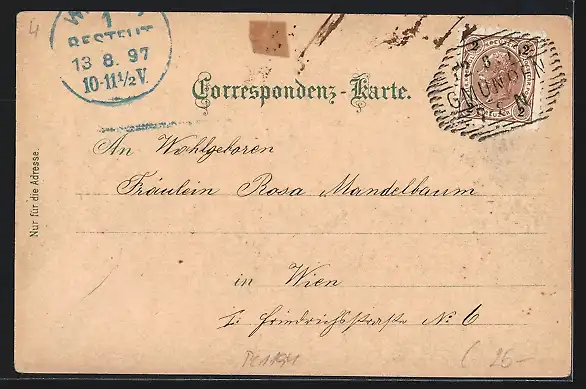 4
1
BESTELLT
13 8. 97
10-11½V.
2 2
GMUNDEN
2
Correspondenz-Karte.
An Wohlgeboren
Fräulein Rosa Mandelbaum
in Wien
I. Friedrichsstraße No 6
Nur für die Adresse.
26-